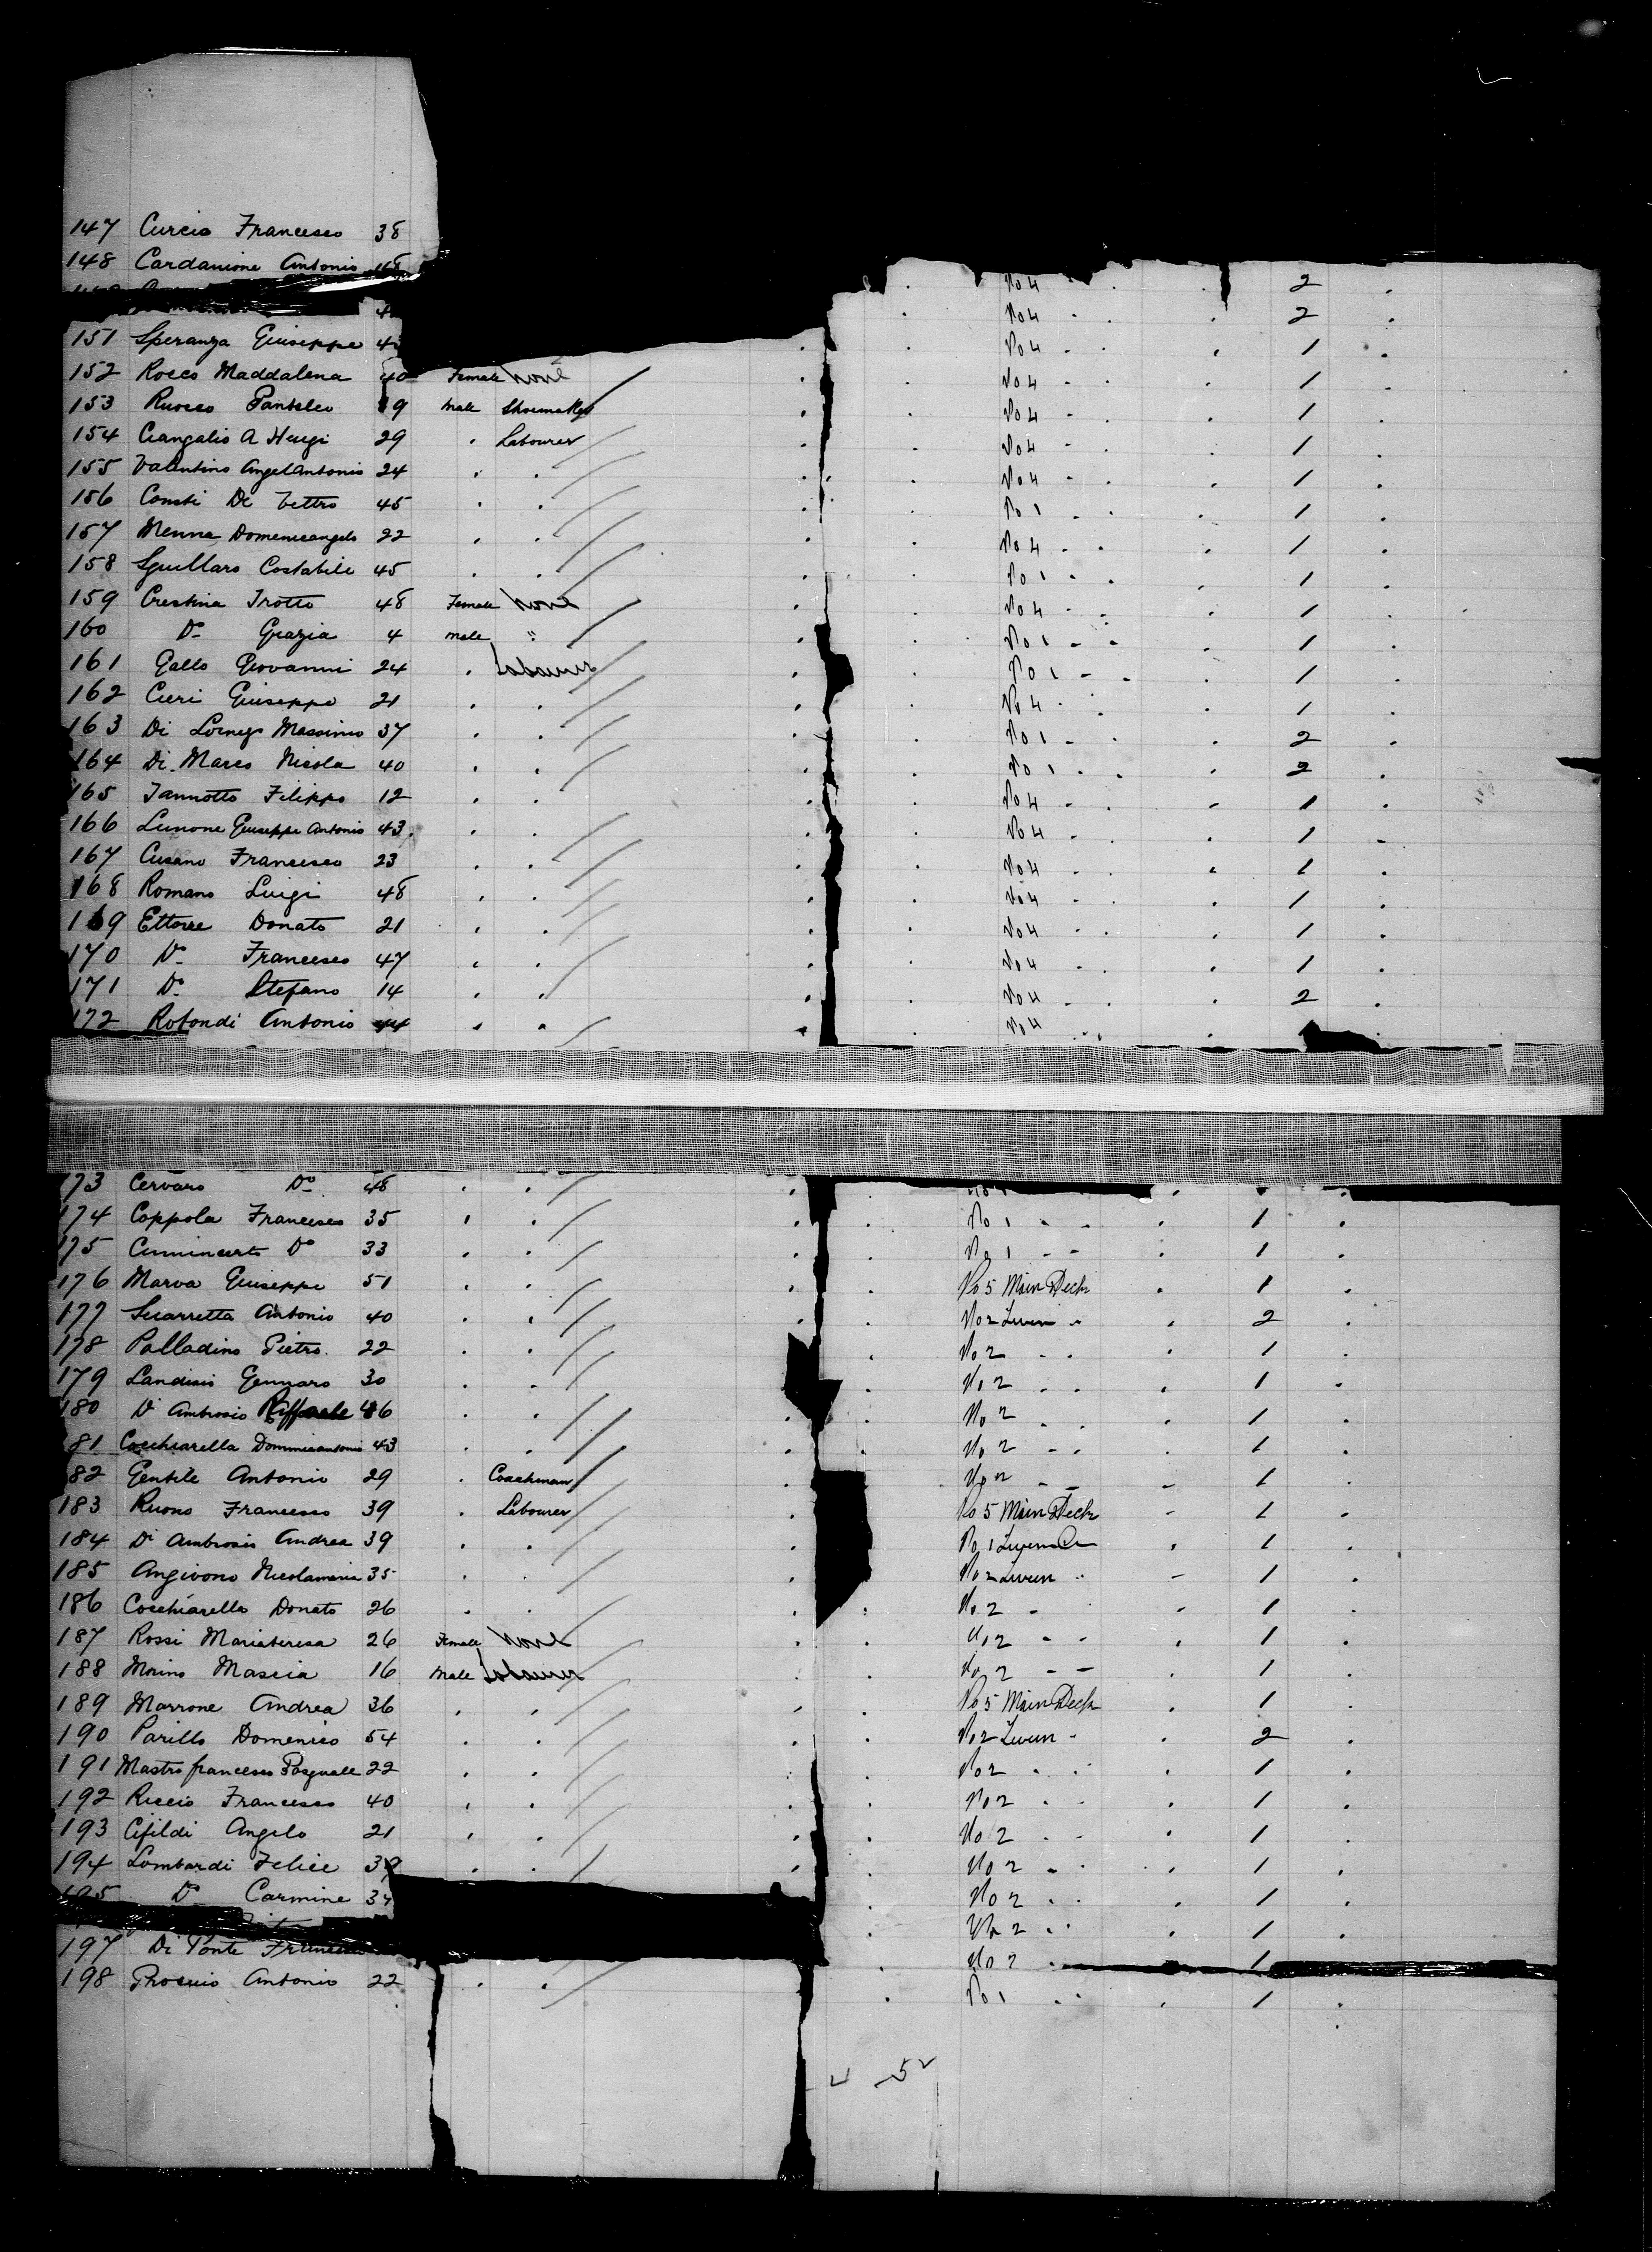 147 Curcio Francesco 38
148 Cardanione Antonio
No 4 2
No 4 2
151 Speranza Giuseppe No 4 1
152 Rocco Maddalena 40 Female None No 4 1
153 Ruocco Pantaleo 39 Male Shoemaker No 4 1
154 29 . Labourer No 4 1
155 Valentino Angelantonio 24 . . No 4 1
156 Conti Di Vettro 45 . . No 1 1
157 Menna Domenicangelo 22 . . No 4 1
158 Costabile 45 . . No 1 1
159 Crestina Trotto 48 Female None No 4 1
160 Do Grazia 4 Male " No 1 1
161 Gallo Giovanni 24 . Labourer No 1 1
162 Cieri Giuseppe 21 . . No 4 1
163 Di Massimo 37 . . No 1 2
164 Di Marco Nicola 40 . . No 1 2
165 Iannotto Filippo 12 . . No 4 1
166 Lunone Giuseppe Antonio 43 . . No 4 1
167 Cusano Francesco 23 . . No 4 1
168 Romano Luigi 48 . . No 4 1
169 Ettorre Donato 21 . . No 4 1
170 Do Francesco 47 . . No 4 1
171 Do Stefano 14 . . No 4 2
172 Rotondi Antonio 44 . . No 4
173 Cervaro Do 48 . .
174 Coppola Francesco 35 . . No 1 1
175 Do 33 . . No 1 1
176 Marva Giuseppe 51 . . No 5 Main Deck 1
177 Sciarretta Antonio 40 . . No 2 Tween " 2
178 Palladino Pietro 22 . . No 2 1
179 Landisio Gennaro 30 . . No 2 1
180 Di Ambrosio Raffaele 46 . . No 2 1
81 Cocchiarella Domenicantonio 43 . . No 2 1
82 Gentile Antonio 29 . Coachman No 2 1
183 Ruono Francesco 39 . Labourer No 5 Main Deck 1
184 Di Ambrosio Andrea 39 . . No 1 Tween 1
185 Angivono Nicolamaria 35 . . No 2 Tween " 1
186 Cocchiarello Donato 26 . . No 2 1
187 Rossi Mariateresa 26 Female None No 2 1
188 Morino Mascia 16 Male Labourer No 2 1
189 Marrone Andrea 36 . . No 5 Main Deck 1
190 Parillo Domenico 54 . . No 2 Tween 2
191 Mastrofrancesco Pasquale 22 . . No 2 1
192 Riccio Francesco 40 . . No 2 1
193 Cifildi Angelo 21 . . No 2 1
194 Lombardi Felice 39 . . No 2 1
195 Do Carmine 34 No 2 1
No 2 1
197 Di Ponte No 2 1
198 Antonio 22 . . No 1 1
52